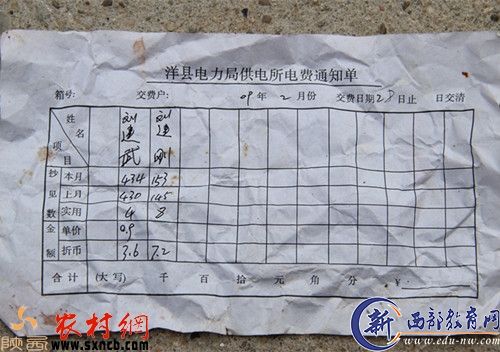 洋县电力局供电所电费通知单
箱号: 交费户: 09年2月份 交费日期28日止 日交清
姓名 刘建武 刘建刚
项目
抄见数 本月 434 153
上月 430 145
实用 4 8
金额 单价 0.9
折币 3.6 7.2
合计 (大写) 千 百 拾 元 角 分 ¥
陕西
农村網
www.sxncb.com
新 西部教育网
www.edu-nw.com